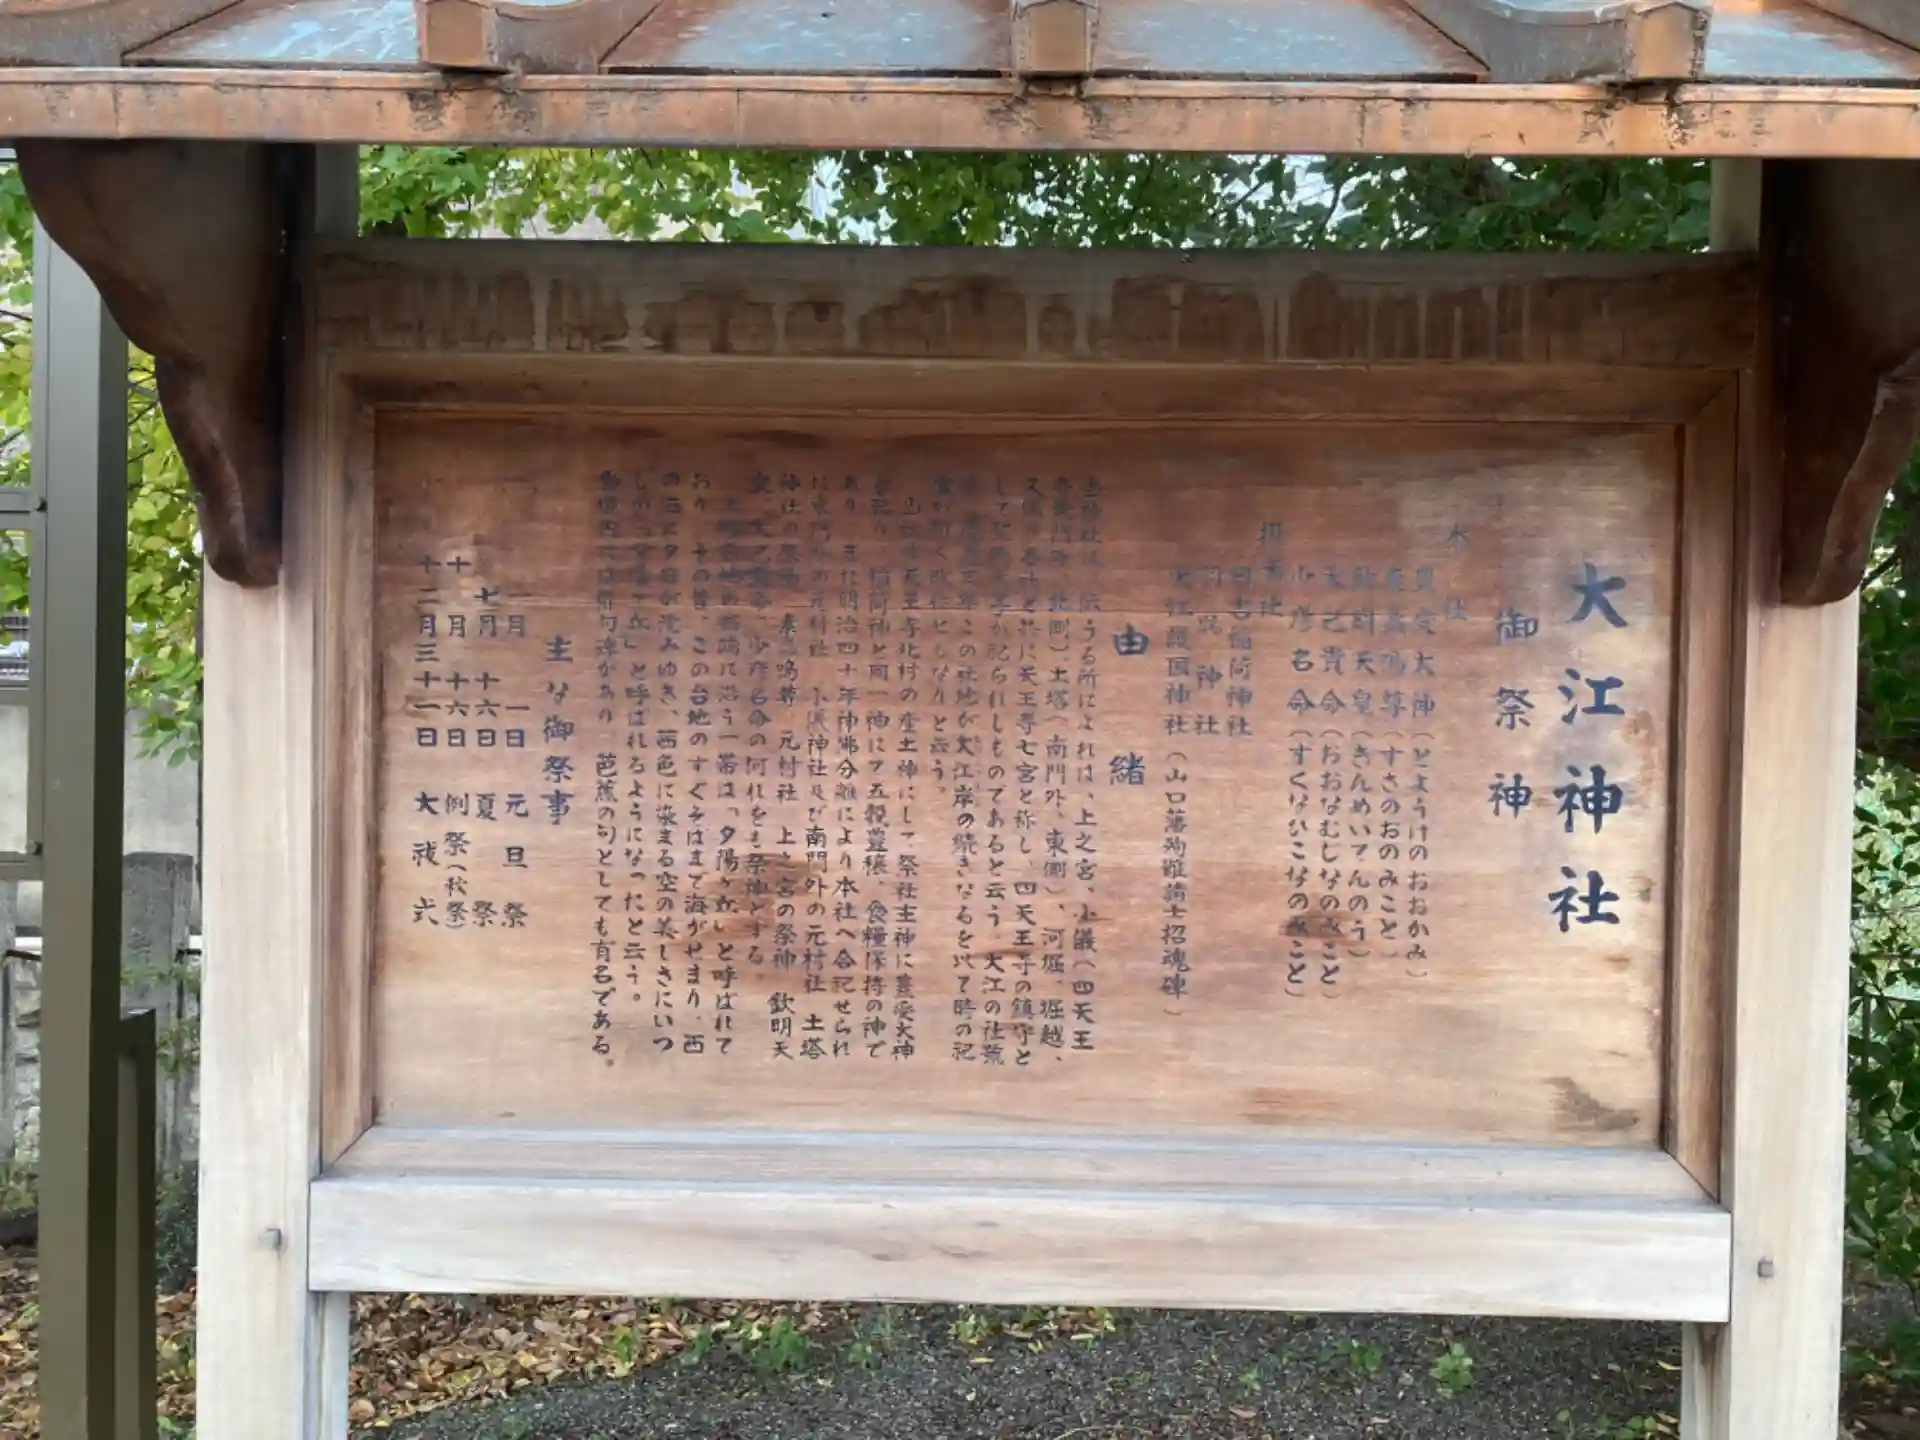 大江神社
御祭神
本社
豊受大神(とようけのおおかみ)
素盞嗚尊(すさのおのみこと)
欽明天皇(きんめいてんのう)
大己貴命(おおなむじなのみこと)
少彦名命(すくなひこなのみこと)
摂末社
神社
大江護国神社(山口藩殉難諸士招魂碑)
由緒
当神社は、伝うる所によれば、上之宮、小儀(四天王
寺東門外、北側)、土塔(南門外、東側)、河堀、堀越、
久保の各社と共に天王寺七宮と称し、四天王寺の鎮守と
して聖徳太子が祀られしものであると云う。大江の社號
この社地が大江岸の続きなるを以て時の祀
官が斯く改称としなりと云う。
当社は天王寺北村の産土神にして、祭社主神に豊受大神
を祀り、稲荷神と同一神にて五穀豊穣、食糧保持の神で
あり、更に明治四十年神佛分離により本社へ合祀せられ
た東門外の元村社 小儀神社及び南門外の元村社 土塔
神社の祭神 素盞嗚尊、元村社 上之宮の祭神 欽明天
皇、大己貴命、少彦名命の何れをも祭神とする。
上町台地の西端に沿う一帯は「夕陽ヶ丘」と呼ばれて
おり、その昔、この台地のすぐそばまで海がせまり、西
の海に夕日が沈みゆき、茜色に染まる空の美しさにいつ
しか「夕陽ヶ丘」と呼ばれるようになったと云う。
尚境内には俳句碑があり、芭蕉の句としても有名である。
主な御祭事
一月 一日 元旦祭
七月 十六日 夏祭
十月 十六日 例祭(秋祭)
十二月三十一日 大祓式